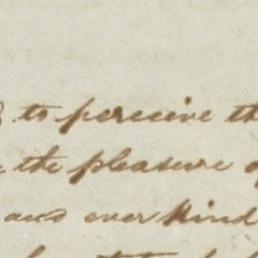 to perceive th
the pleasure of
and ever kind